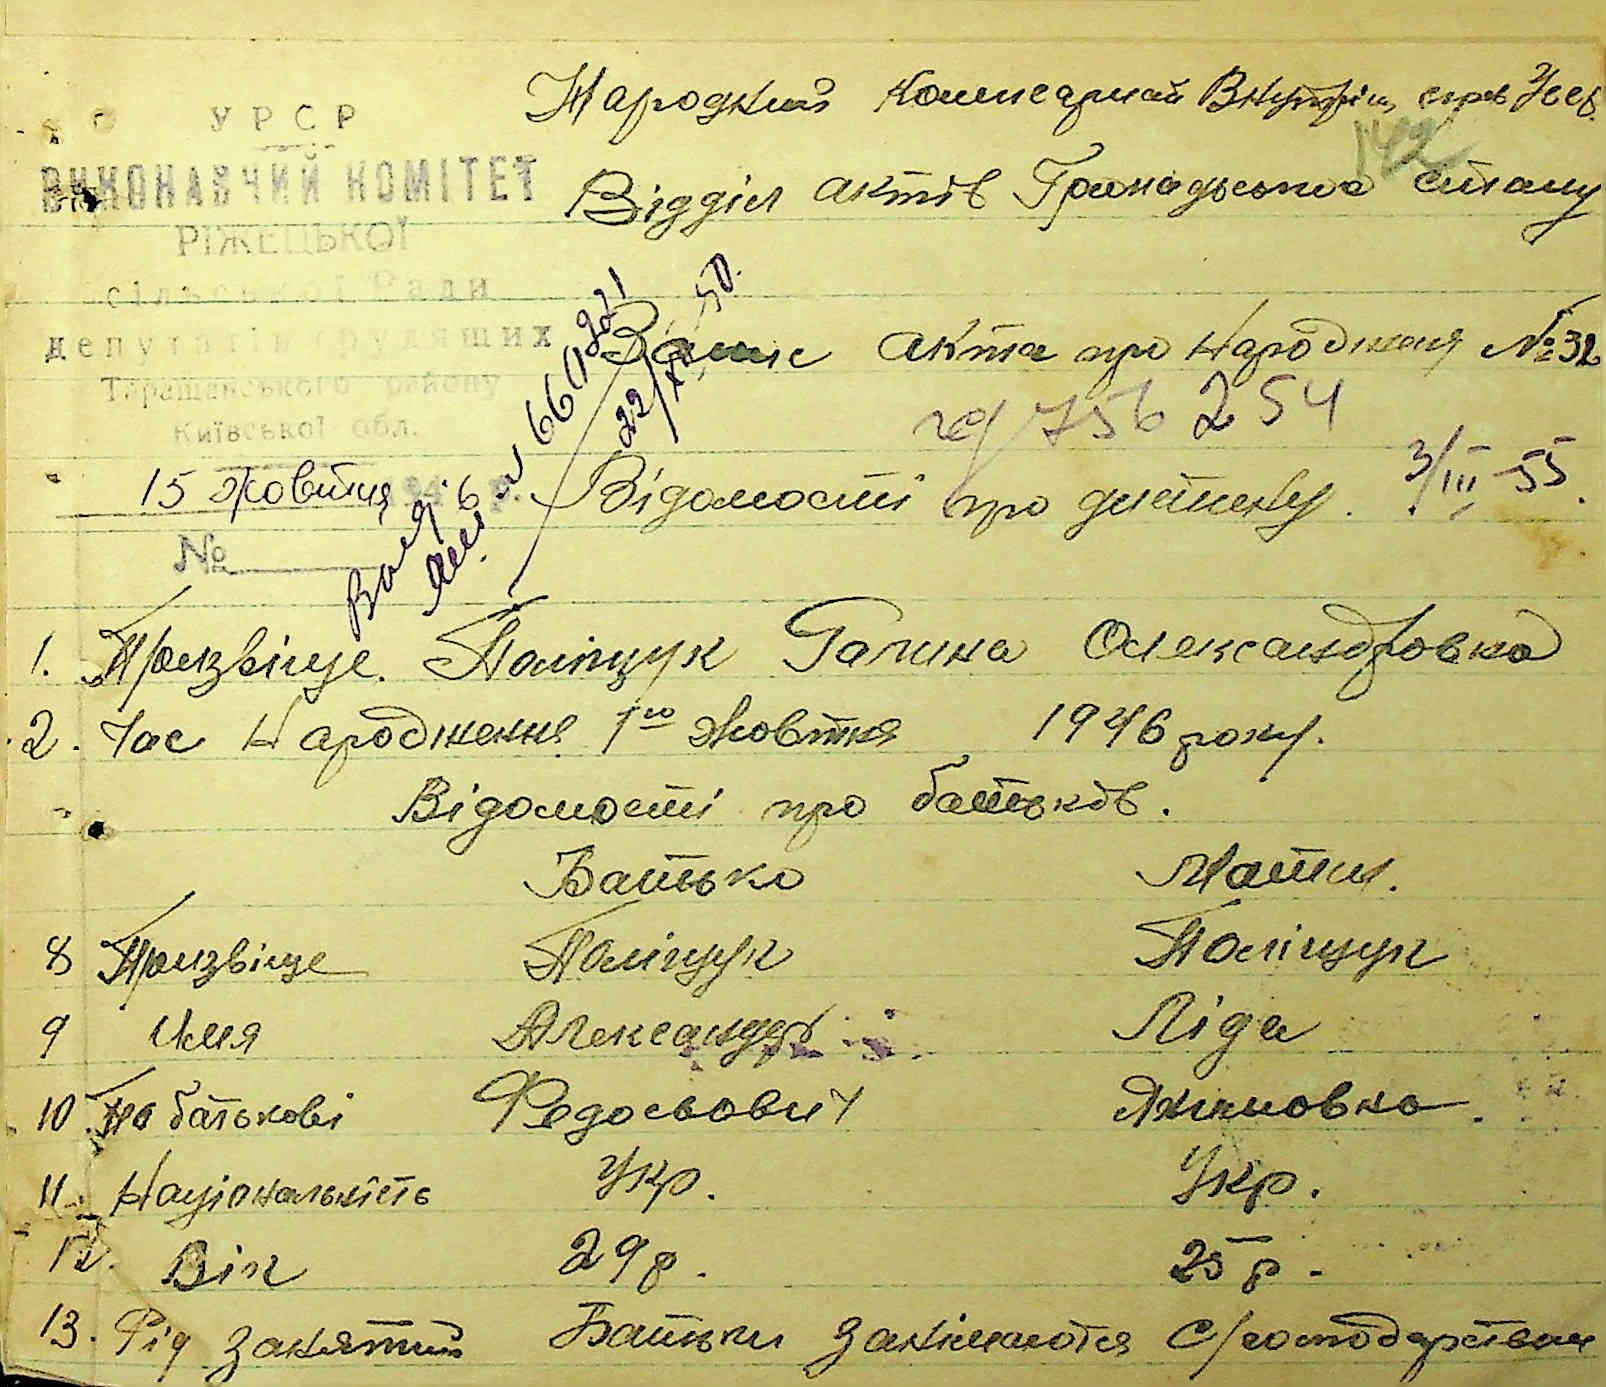 УРСР
ВИКОНАВЧИЙ КОМІТЕТ
РІЖЕЦЬКОЇ
сільської Ради
депутатів трудящих
Таращанського району
Київської обл.
15 жовтня 1946 р.
№
Народний Комісаріат Внутріш, справ Усср.
142
Відділ актів Громадського стану
Запис акта про народження №32
756254
660821
22/XI 50.
Відомості про дитину.
3/III-55.
1. Призвіще. Поліщук Галина Олександровна
2. Час Народження 1го жовтня 1946 року.
Відомості про батьків.
Батько Мати.
8 Призвіще Поліщук Поліщук
9 Имя Александр Ліда
10. По батькові Федосьович Якимовна.
11. Національність Укр. Укр.
12. Вік 29р. 25р.
13. Рід занятий Батьки занімаются С/господарством